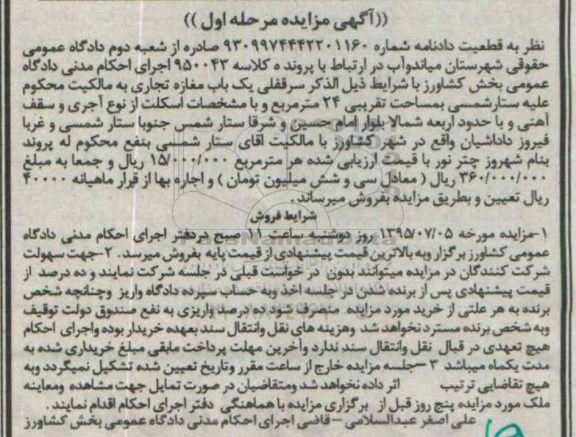 ((آگهی مزایده مرحله اول ))
نظر به قطعیت دادنامه شماره ۹۳۰۹۹۷۴۴۴۲۲۰۱۱۶۰ صادره از شعبه دوم دادگاه عمومی
حقوقی شهرستان میاندوآب در ارتباط با پرونده کلاسه ۹۵۰۰۴۲ اجرای احکام مدنی دادگاه
عمومی بخش کشاورز با شرایط ذیل الذکر سرقفلی یک باب مغازه تجاری به مالکیت محکوم
علیه ستارشمسی بمساحت تقریبی ۲۴ مترمربع و با مشخصات اسکلت از نوع آجری و سقف
آهنی و با حدود اربعه شمالا بلوار امام حسین و شرقا ستار شمس جنوبا ستار شمسی و غربا
فیروز داداشیان واقع در شهر کشاورز با مالکیت آقای ستار شمسی بنفع محکوم له پروند
بنام شهروز چتر نور با قیمت ارزیابی شده هر مترمربع ۱۵/۰۰۰/۰۰۰ ریال و جمعا به مبلغ
۳۶۰/۰۰۰/۰۰۰ ریال ( معادل سی و شش میلیون تومان ) و اجاره بها از قرار ماهیانه ۴۰۰۰۰
ریال تعیین و بطریق مزایده بفروش میرساند.
شرایط فروش
۱-مزایده مورخه ۱۳۹۵/۰۷/۰۵ روز دوشنبه ساعت ۱۱ صبح دردفتر اجرای احکام مدنی دادگاه
عمومی کشاورز برگزار وبه بالاترین قیمت پیشنهادی از قیمت پایه بفروش میرسد . ۲-جهت سهولت
شرکت کنندگان در مزایده میتوانند بدون در خواست قبلی در جلسه شرکت نمایند و ده درصد از
قیمت پیشنهادی پس از برنده شدن در جلسه اخذ وبه حساب سپرده دادگاه واریز وچنانچه شخص
برنده به هر علتی از خرید مورد مزایده منصرف شود ده درصد واریزی به نفع صندوق دولت توقیف
وبه شخص برنده مسترد نخواهد شد وهزینه های نقل وانتقال سند بعهده خریدار بوده واجرای احکام
هیچ تعهدی در قبال نقل وانتقال سند ندارد وآخرین مهلت پرداخت مابقی مبلغ خریداری شده به
مدت یکماه میباشد ۳ -جلسه مزایده خارج از ساعت مقرر وتاریخ تعیین شده تشکیل نمیگردد وبه
هیچ تقاضایی ترتیب اثر داده نخواهد شد ومتقاضیان در صورت تمایل جهت مشاهده ومعاینه
ملک مورد مزایده پنج روز قبل از برگزاری مزایده با هماهنگی دفتر اجرای احکام اقدام نمایند .
علی اصغر عبدالسلامی – قاضی اجرای احکام مدنی دادگاه عمومی بخش کشاورز